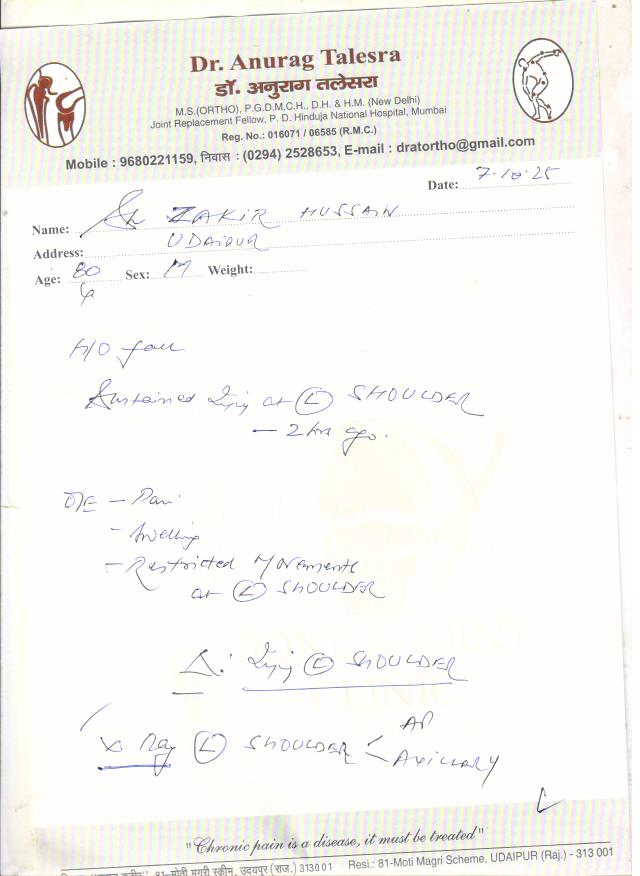 Dr. Anurag Talesra
डॉ. अनुराग तलेसरा
M.S.(ORTHO), P.G.D.M.C.H., D.H. & H.M. (New Delhi)
Joint Replacement Fellow, P. D. Hinduja National Hospital, Mumbai
Reg. No.: 016071 / 06585 (R.M.C.)
Mobile : 9680221159, निवास : (0294) 2528653, E-mail : dratortho@gmail.com
Date: 7.10.25
Name: Sh ZAKIR HUSSAIN
Address: UDAIPUR
Age: 80 Sex: M Weight:
H/O fall
Sustained Injury at (L) SHOULDER
— 2 hrs ago.
O/E – Pain
– Swelling
– Restricted Movements
at (L) SHOULDER
Δ: Injury (L) SHOULDER
X Ray (L) SHOULDER < AP
AXILLARY
"Chronic pain is a disease, it must be treated"
81-मोती मगरी स्कीम, उदयपुर (राज.) 313001 Resi.: 81-Moti Magri Scheme, UDAIPUR (Raj.) - 313 001